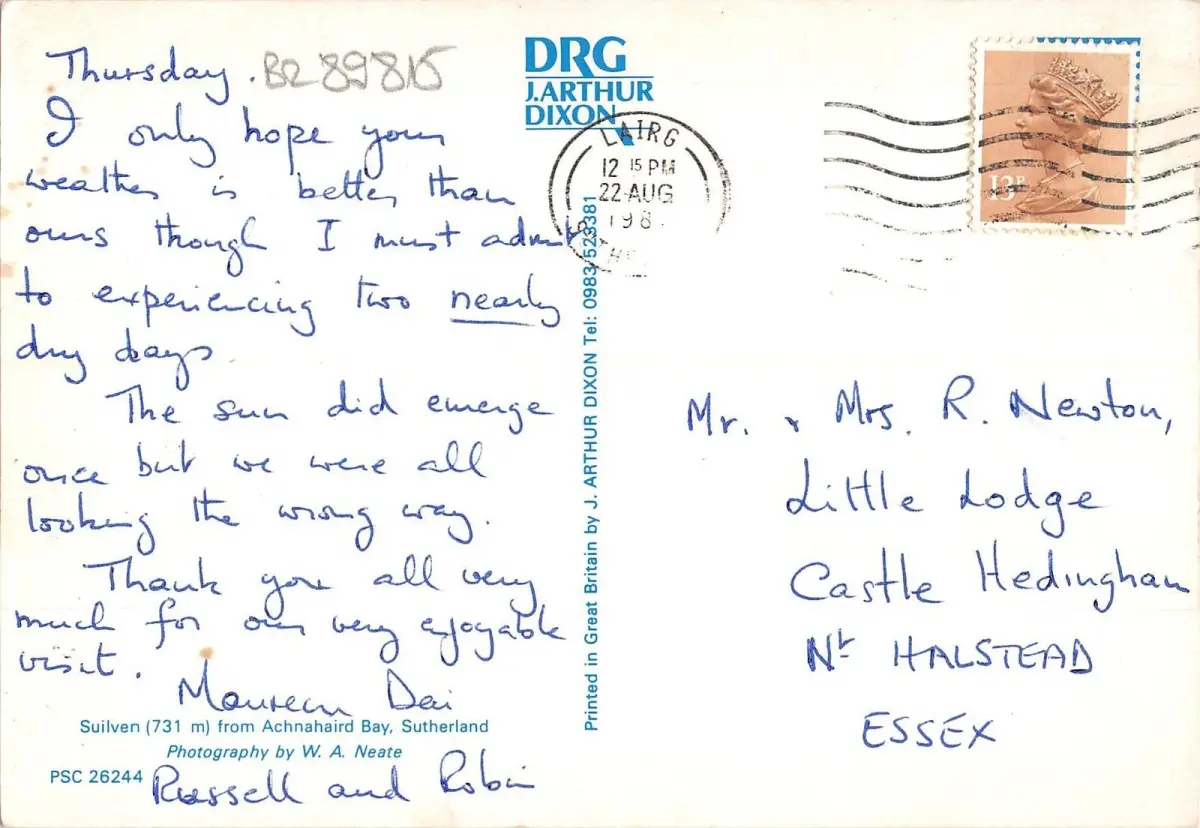 Thursday. B2 89815
I only hope your
weather is better than
ours though I must admit
to experiencing two nearly
dry days.
The sun did emerge
once but we were all
looking the wrong way.
Thank you all very
much for our very enjoyable
visit.
Maureen Dai
Suilven (731 m) from Achnahaird Bay, Sutherland
Photography by W. A. Neate
PSC 26244
Russell and Robin
DRG
J. ARTHUR
DIXON
Printed in Great Britain by J. ARTHUR DIXON Tel: 0983/523381
LAIRG
12 15 PM
22 AUG
198
13P
Mr. & Mrs. R. Newton,
Little Lodge
Castle Hedingham
Nr HALSTEAD
ESSEX